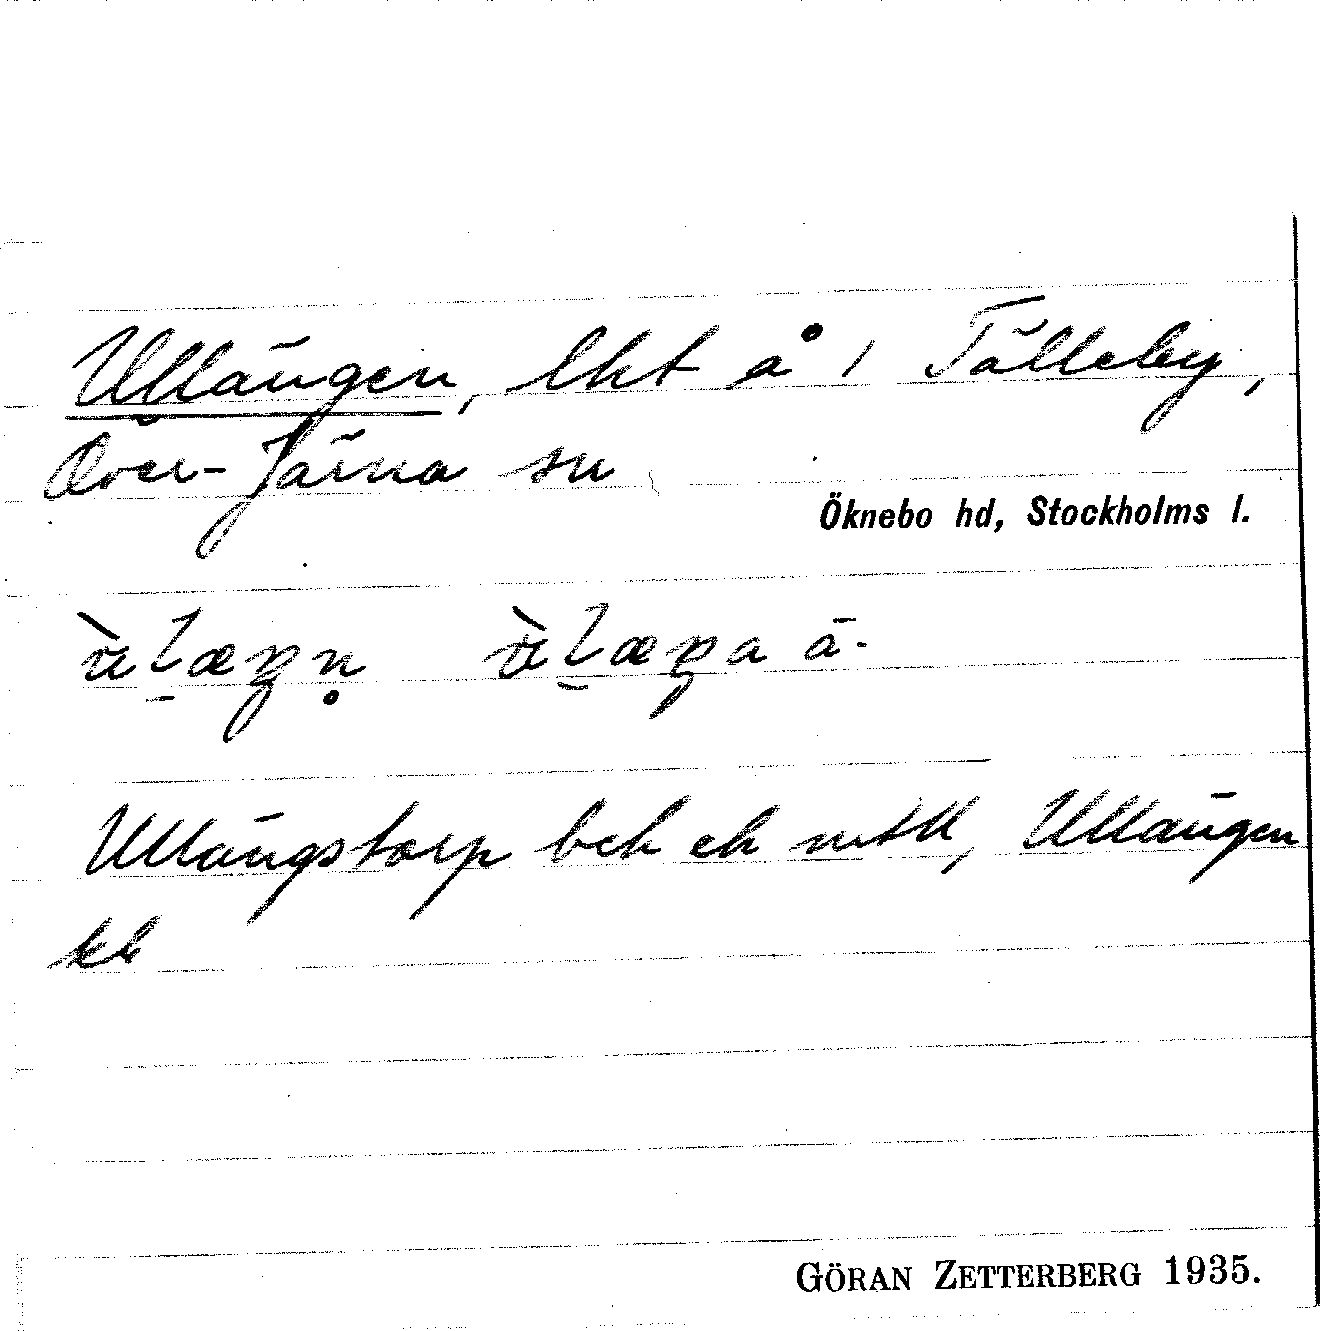 Ullängen, lht å 1 Tälleby,
Över-Järna sn
Öknebo hd, Stockholms l.
Ullängstorp bek ek mtll, Ullängen
kk
GÖRAN ZETTERBERG 1935.